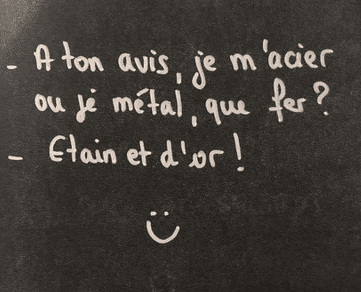 - A ton avis, je m'acier
ou je métal, que fer?
- Etain et d'or!